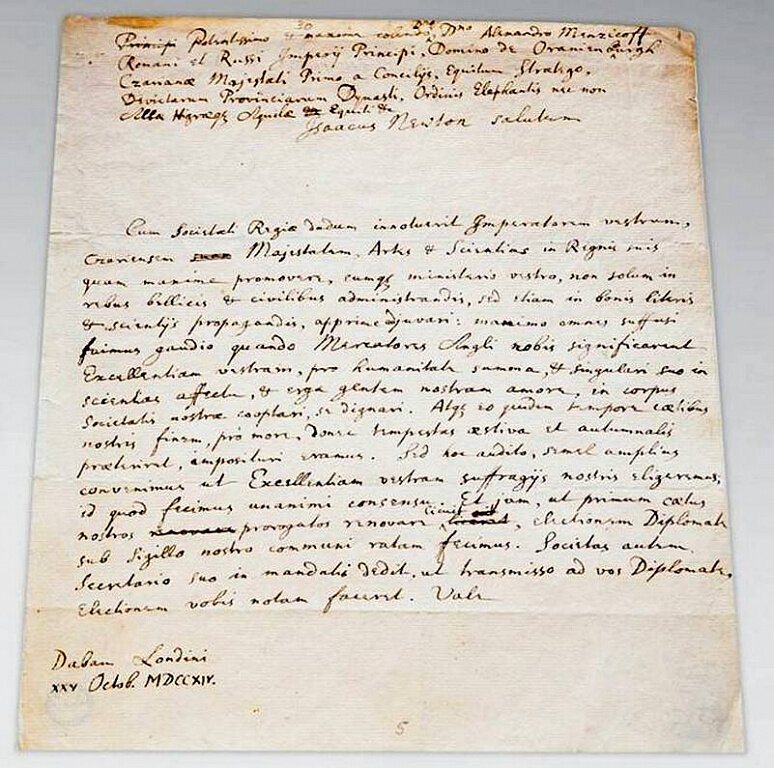 Principi Potentissimo & maxime colendo Dno Dno Alexandro Menzicoff
Romani et Russi Imperij Principi, Domino de Oranienburgh
Czarianæ Majestati Primo a Concilijs, Equitum Stratego,
Devictarum Provinciarum Dynasti, Ordinis Elephantis nec non
Aquilæ & Equiti &c
Isaacus Newton salutem
Cum Societati Regiæ dudum innotuerit Imperatorem vestrum,
Czariensem suam Majestatem, Artes & Scientias in Regnis suis
quam maxime promovere, eumqꝫ ministerio vestro, non solum in
rebus bellicis & civilibus administrandis, sed etiam in bonis literis
& scientijs propagandis, apprime adjuvari: maximo omnes suffusi
fuimus gaudio quando Mercatores Angli nobis significarent
Excellentiam vestram, pro humanitate summa, & singulari suo in
scientias affectu, & erga gentem nostram amore, in corpus
Societatis nostræ cooptari, se dignari. Atqꝫ eo quidem tempore cœtibus
nostris finem, pro more, donec tempestas æstiva et autumnalis
præteriret, imposituri eramus. Sed hoc audito, semel amplius
convenimus ut Excellentiam vestram suffragijs nostris eligeremus,
id quod fecimus unanimi consensu. Et jam, ut primum cœtus
nostros prorogatos renovare licuit, electionem Diplomate
sub sigillo nostro communi ratam fecimus. Societas autem
Secretario suo in mandatis dedit, ut transmisso ad vos Diplomate,
Electionem vobis notam faceret. Vale
Dabam Londini
XXV Octob. MDCCXIV.
5